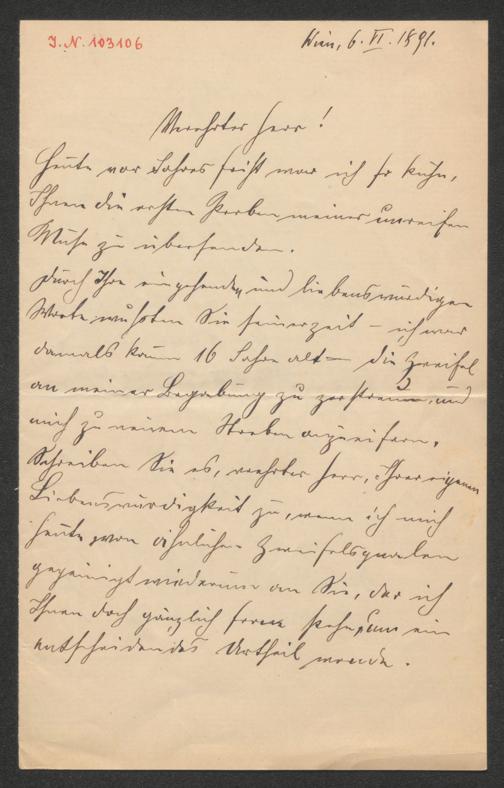 I.N. 103106
Wien, 6. VI. 1891.
Verehrter Herr!
Heute vor Jahresfrist war ich so kühn,
Ihnen die ersten Proben meiner unreifen
Muse zu übersenden.
Durch Ihre eingehenden und liebenswürdigen
Worte wußten Sie seinerzeit – ich war
damals kaum 16 Jahre alt – die Zweifel
an meiner Begabung zu zerstreuen, und
mich zu neuem Streben anzueifern.
Schreiben Sie es, verehrter Herr, Ihrer eigenen
Liebenswürdigkeit zu, wenn ich mich
heute, von ähnlichen Zweifelsqualen
gepeinigt wiederum an Sie, der ich
Ihnen doch gänzlich ferne stehe, um ein
entscheidendes Urtheil wende.